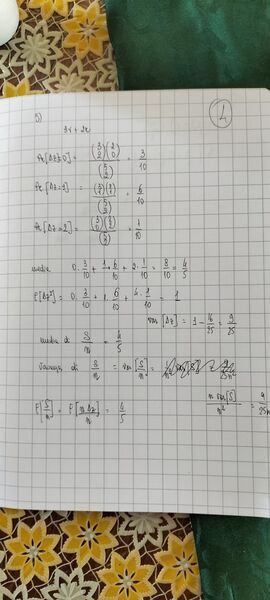 4
5)
3r + 2z
Pr[Δz=0] = \frac{\binom{3}{2}\binom{2}{0}}{\binom{5}{2}} = \frac{3}{10}
Pr[Δz=1] = \frac{\binom{3}{1}\binom{2}{1}}{\binom{5}{2}} = \frac{6}{10}
Pr[Δz=2] = \frac{\binom{3}{0}\binom{2}{2}}{\binom{5}{2}} = \frac{1}{10}
media 0·\frac{3}{10} + 1·\frac{6}{10} + 2·\frac{1}{10} = \frac{8}{10} = \frac{4}{5}
E[Δz²] = 0·\frac{3}{10} + 1·\frac{6}{10} + 4·\frac{1}{10} = 1
var[Δz] = 1 - \frac{16}{25} = \frac{9}{25}
media di \frac{S}{n} = \frac{4}{5}
varianza di \frac{S}{n} = var[\frac{S}{n}] =
\frac{n var[S]}{n²} = \frac{9}{25n}
E[\frac{S}{n}] = E[\frac{n Δz}{n}] = \frac{4}{5}